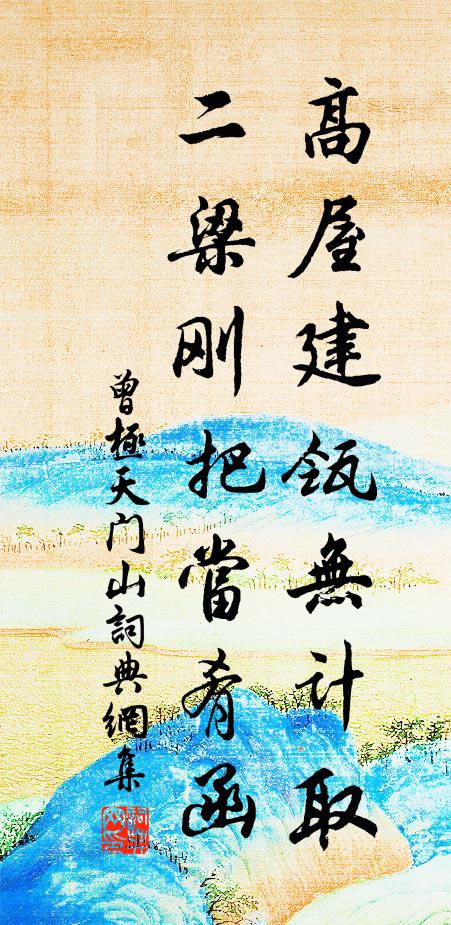 高屋建瓴無計取
二梁刚把當肴函
曾極天门山詞典網集